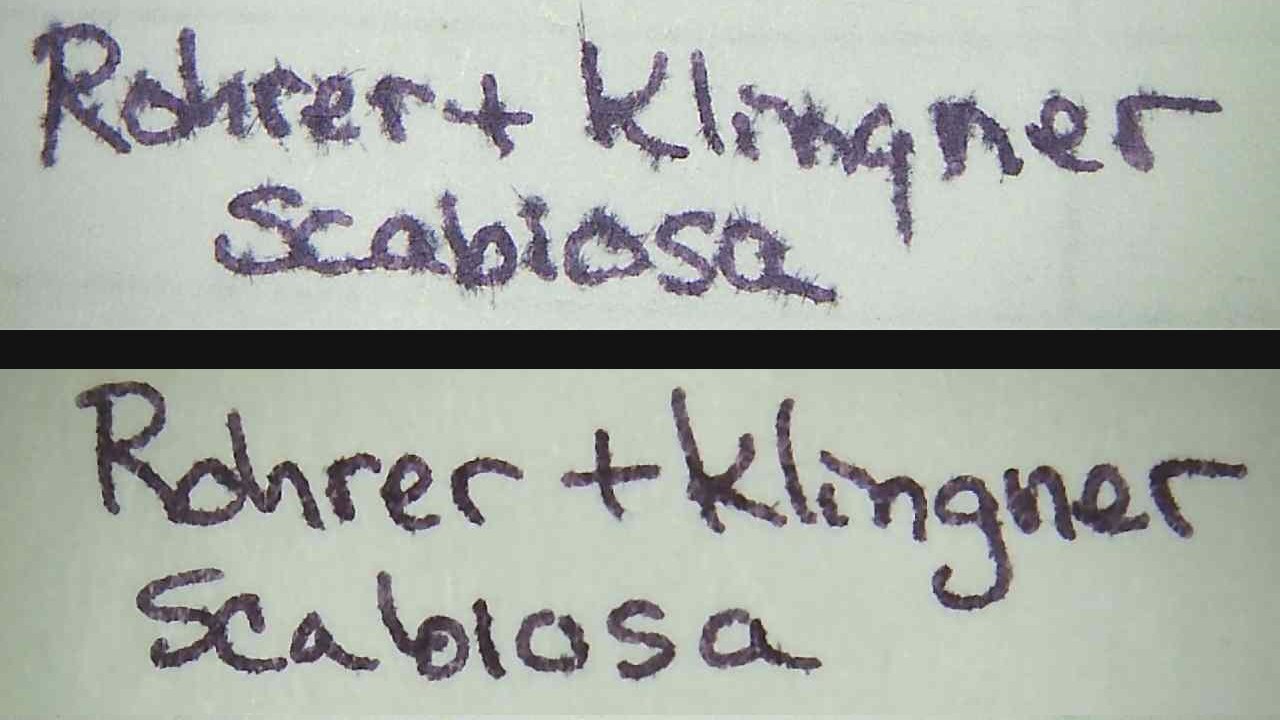 Rohrer + Klingner
Scabiosa
Rohrer + Klingner
Scabiosa